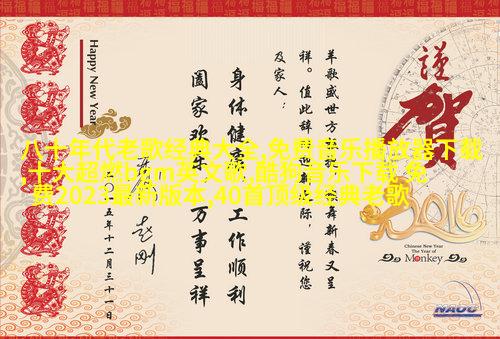 Happy New Year
謹賀
2016
Chinese New Year
The Year of
Monkey
羊歌盛世方 舞新春又呈
祥。值此辞 际，谨祝您
及家人：
身体健康 工作顺利
阖家欢乐 万事呈祥
五年十二月三十一日
八十年代老歌经典大全,免费音乐播放器下载
十大超燃bgm英文歌,酷狗音乐下载免
费2023最新版本,40首顶级经典老歌
NAOC